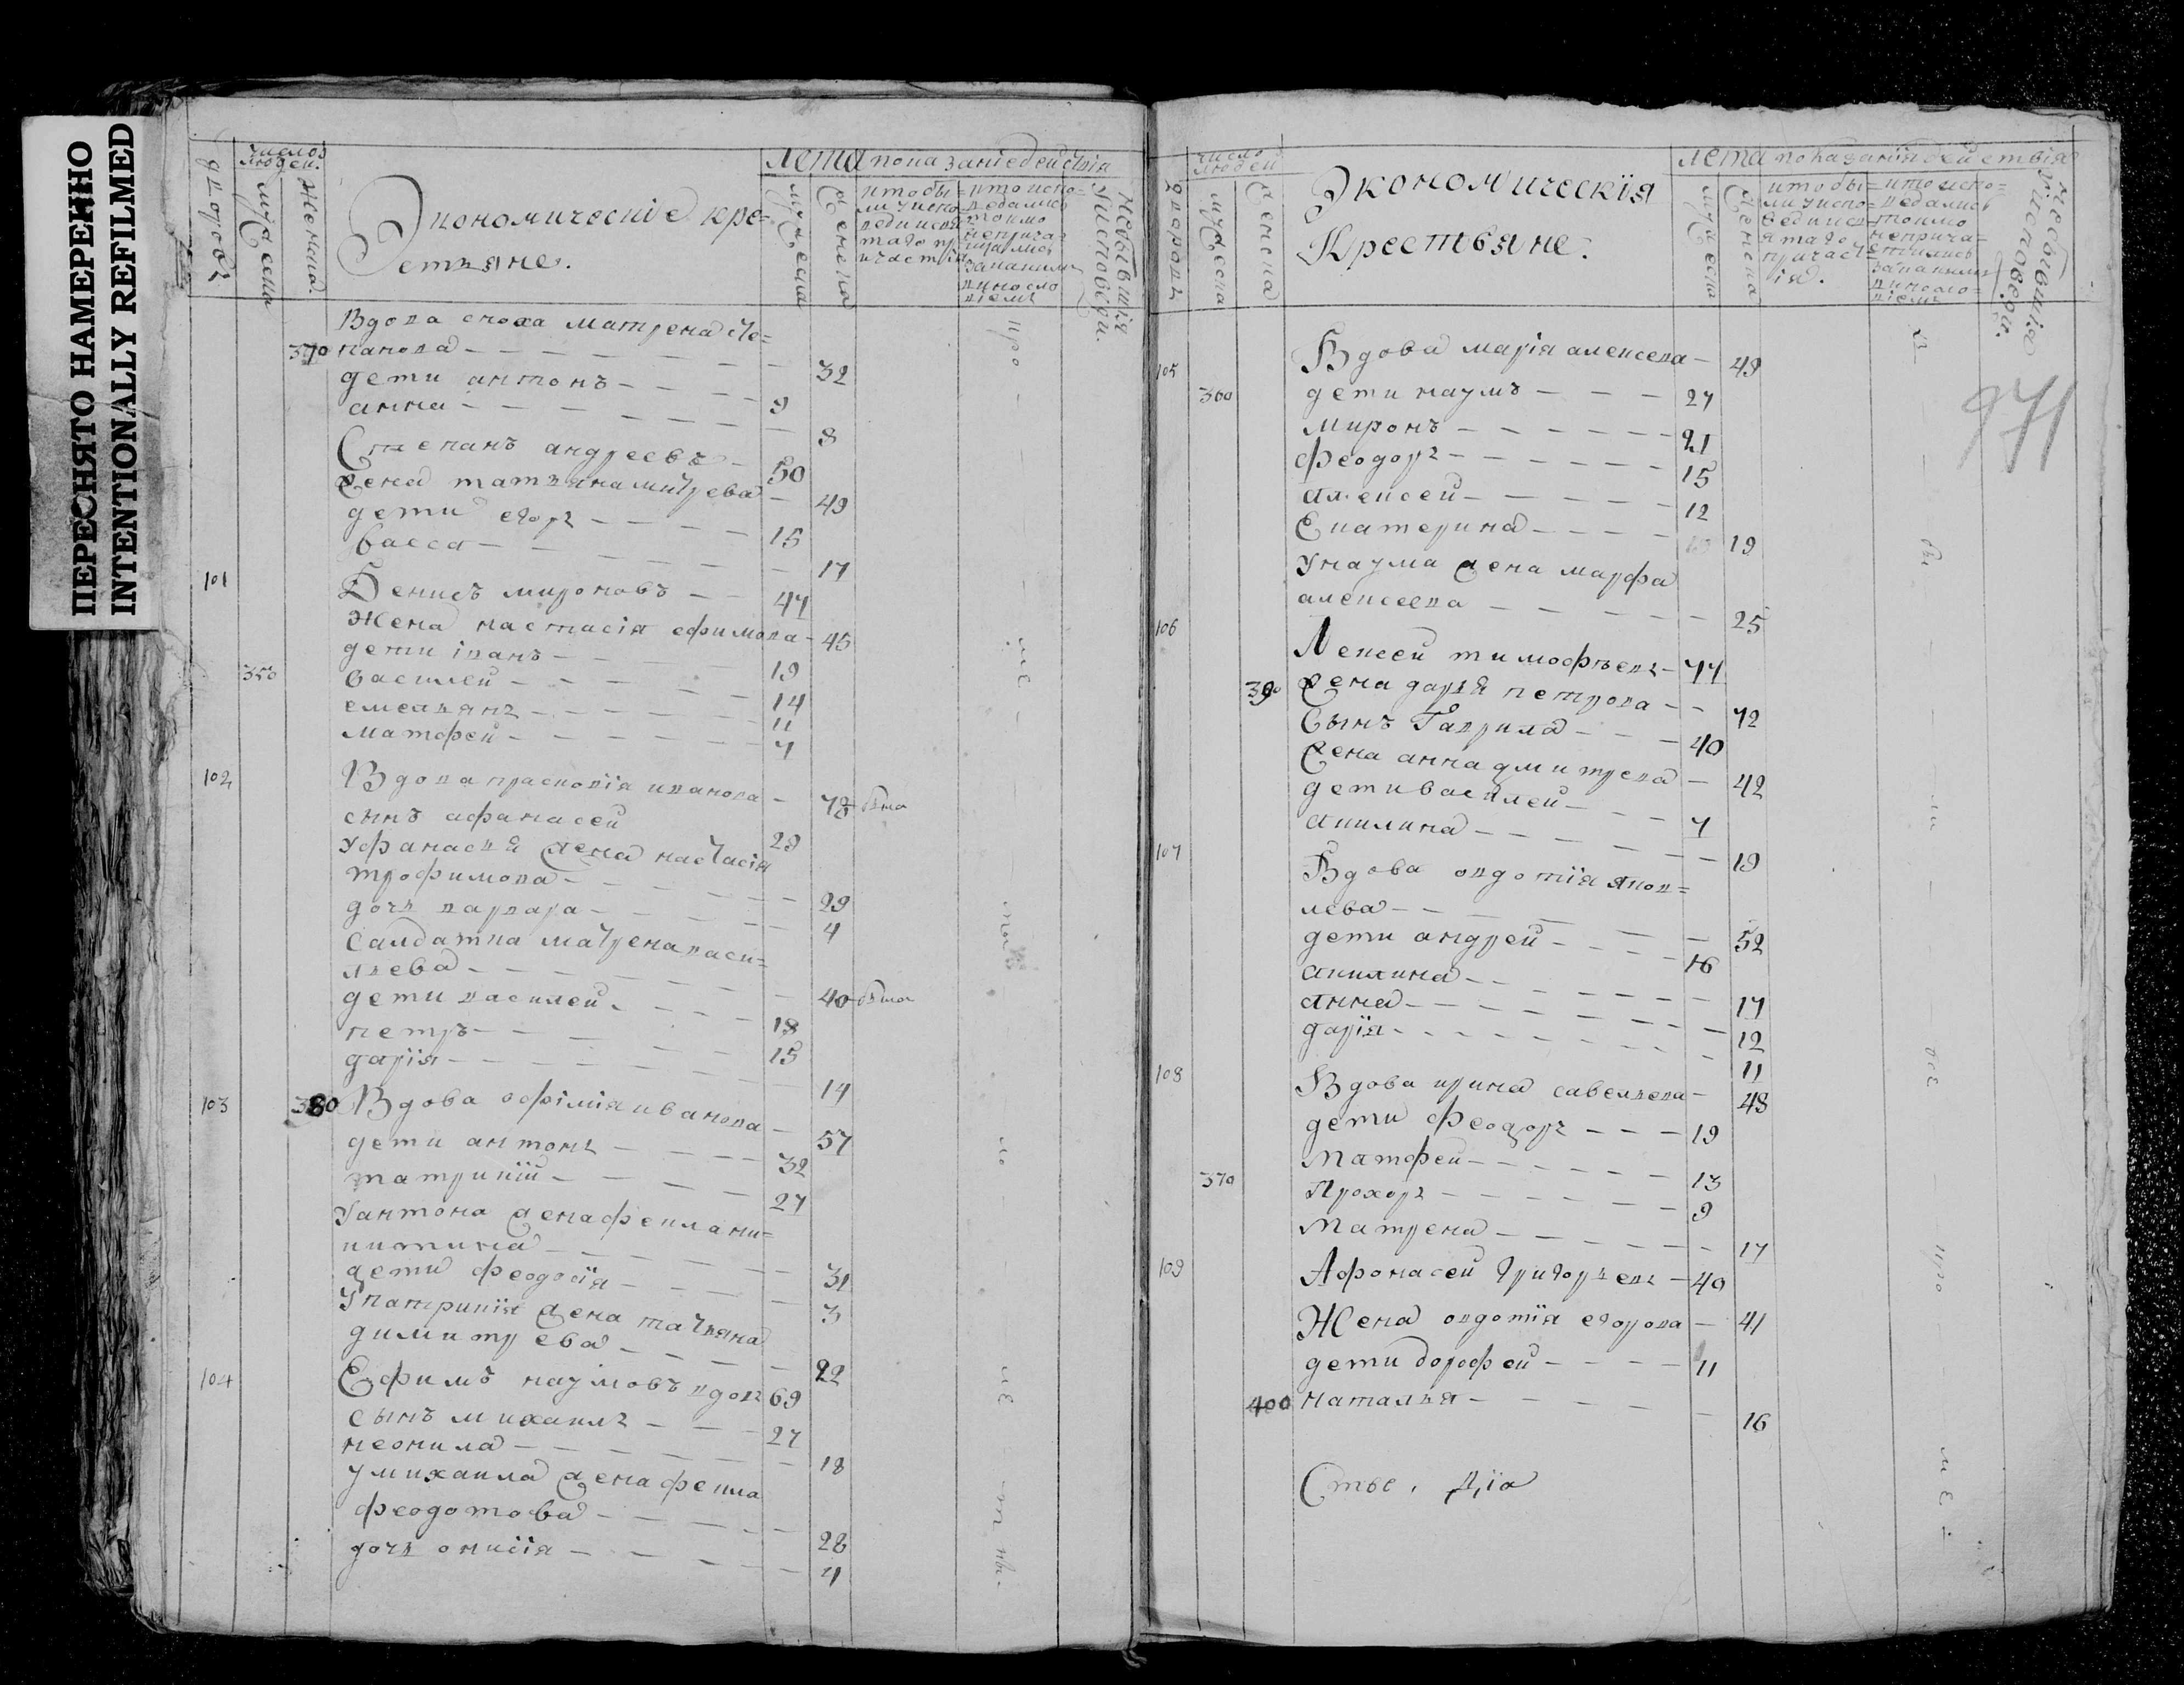 ПЕРЕСНЯТО НАМЕРЕННО
INTENTIONALLY REFILMED
число
людей.
дворовъ
муж: еска
женска
Экономическіе кре=
стьяне.
лета показаніе действія
муж: еска
женска
кто бы=
ли у испо=
ведии свя
таго пр
ичастія
кто испо=
ведались
токмо
неприча=
щались
за какимъ
виносло
віемъ
небывшія
у исповеди.
Вдова сноха матрена сте=
370 панова - 32
дети антонъ - 9
анна - 8
Степанъ андреевъ - 50
жена татьяна митрева - 49
дети егоръ - 15
васса - 17
101 Денисъ мироновъ - 47
жена настасія ефимова - 45
дети іванъ - 19
350 василей - 14
емельянъ - 11
матфей - 7
102 Вдова прасковія иванова - 78
сынъ афанасей 29
у афанасья жена настасія
трофимова - 29
дочь варвара - 4
салдатка матрена васи=
льева - 40
дети василей - 18
петръ - 15
дарія - 14
103 380 Вдова офімія иванова - 57
дети антонъ - 32
патрикій - 27
У антона жена фекла ни=
китина - 31
дети феодосія - 3
У патрикія жена татьяна
димитрева - 22
104 Ефимъ наумовъ вдовъ 69
сынъ михаилъ - 27
неонила - 18
у михаила жена фекла
феодотова - 28
дочь онисія - 4
число
людей
дворовъ
муж: еска
женска
Экономическія
Крестьяне.
лета показанія действія
муж: еска
женска
кто бы=
ли у испо=
ведии св=
ятаго
причаст=
ія.
кто испо=
ведались
токмо
неприча=
стились
за какимъ
виносло=
віемъ
небывшія
у исповеди.
971
105 Вдова марія алексева - 49
360 дети наумъ - 27
миронъ - 21
феодоръ - 15
алексей - 12
Екатерина - 19
у наума жена марфа
алексеева - 25
106 Алексей тимофѣевъ - 77
390 жена дарья петрова - 72
Сынъ Гаврила - 40
жена анна дмитрева - 42
дети василей - 7
акилина - 19
107 Вдова овдотія яков=
лева - 52
дети андрей - 16
акилина - 17
анна - 12
дарія - 11
108 Вдова ирина савельева - 48
дети феодоръ - 19
матфей - 13
370 Прохоръ - 9
матрена - 17
109 Афонасей григорьевъ - 40
Жена овдотія егорова - 41
дети дорофей - 11
400 наталья - 16